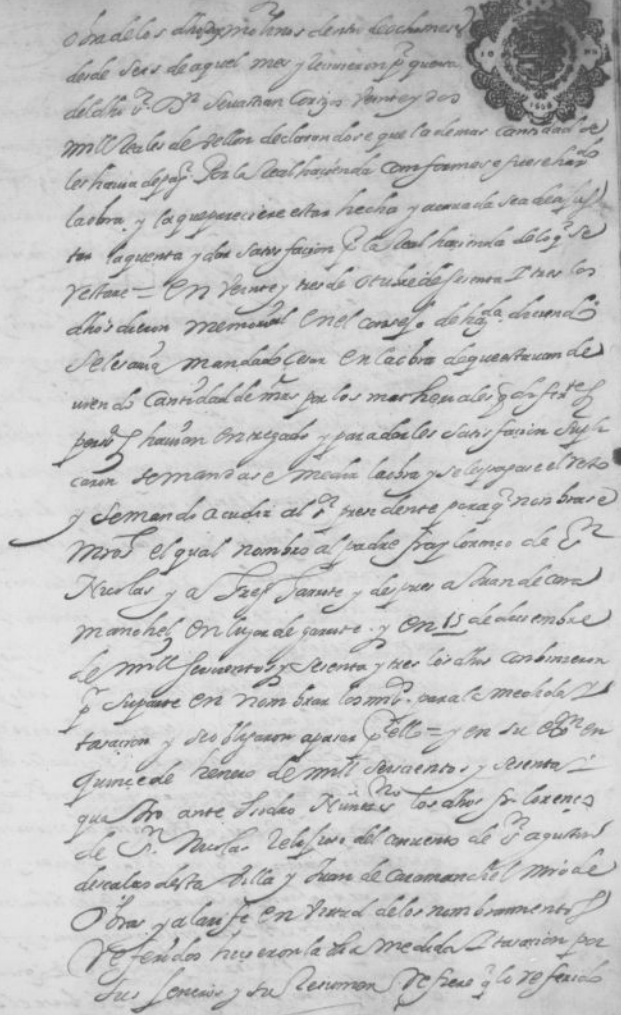 obra de los dhos molinos dentro de ocho meses
desde seis de aquel mes y reciuieron pr quenta
del dho sr Dn Seuastian Cortizos Veinte y dos
mill Reales de Vellon declarandose que la demas cantidad se
les hauia de pagr Por la Real hacienda conforme se fuese hazdo
la obra y la que pareciere estar hecha y acauada sea de ajus
tar la quenta y dar satisfacion pr la Real hacienda de lo q se
restare = En Veinte y tres de otubre de sesenta y tres los
dhos dieron memorial en el consejo de hazda diciendo
se les auia mandado cesar en la obra de que estauan de
uiendo cantidad de mrs por los materiales q difertes
persos hauian entregado y para darles satisfacion supli
caron se mandase medir la obra y se les pagase el resto
y se mando acudir al sr presidente para q nonbrase
Mros el qual nombro al padre fray lorenço de Sn
Nicolas y a Josep Garute y despues a Juan de cara
manchel en lugar de garute y en 15 de diciembre
de mill seiscientos y sesenta y tres los dhos conbinieron
pr su parte en nombrar los mros para la medida y
tasacion y se obligaron a pasar pr ello = y en su en
quinçe de henero de mill seiscientos y sesenta y
quatro ante Isidro Núnez los dhos fr lorenço
de Sn Nicolas Relijioso del conuento de Sn agustin
descalço desta Villa y Juan de Caramanchel mro de
Obras y alarife en Virtud de los nombramientos
Referidos hiçieron la dha medida y tasacion por
sus generos y su Resumen Refiere q lo referido